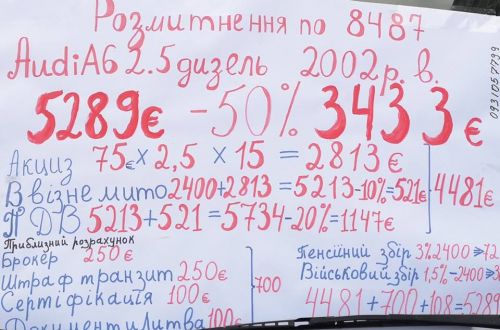 Розмитнення по 8487
AudiA6 2.5 дизель 2002р. в.
5289€ -50% 3433€
Акциз 75€ x 2,5 x 15 = 2813€
Ввізне мито 2400+2813 = 5213-10% = 521€
4481€
ПДВ 5213+521 = 5734-20% = 1147€
Приблизний розрахунок
Брокер 250€
Штраф транзит 250€
Сертіфікація 100€
Документи Литва 100€
700
Пенсійний збір 3% 2400 ⇒ 72
Військовий збір 1,5% - 2400 ⇒
4481 + 700 + 108 = 5289
0931057799